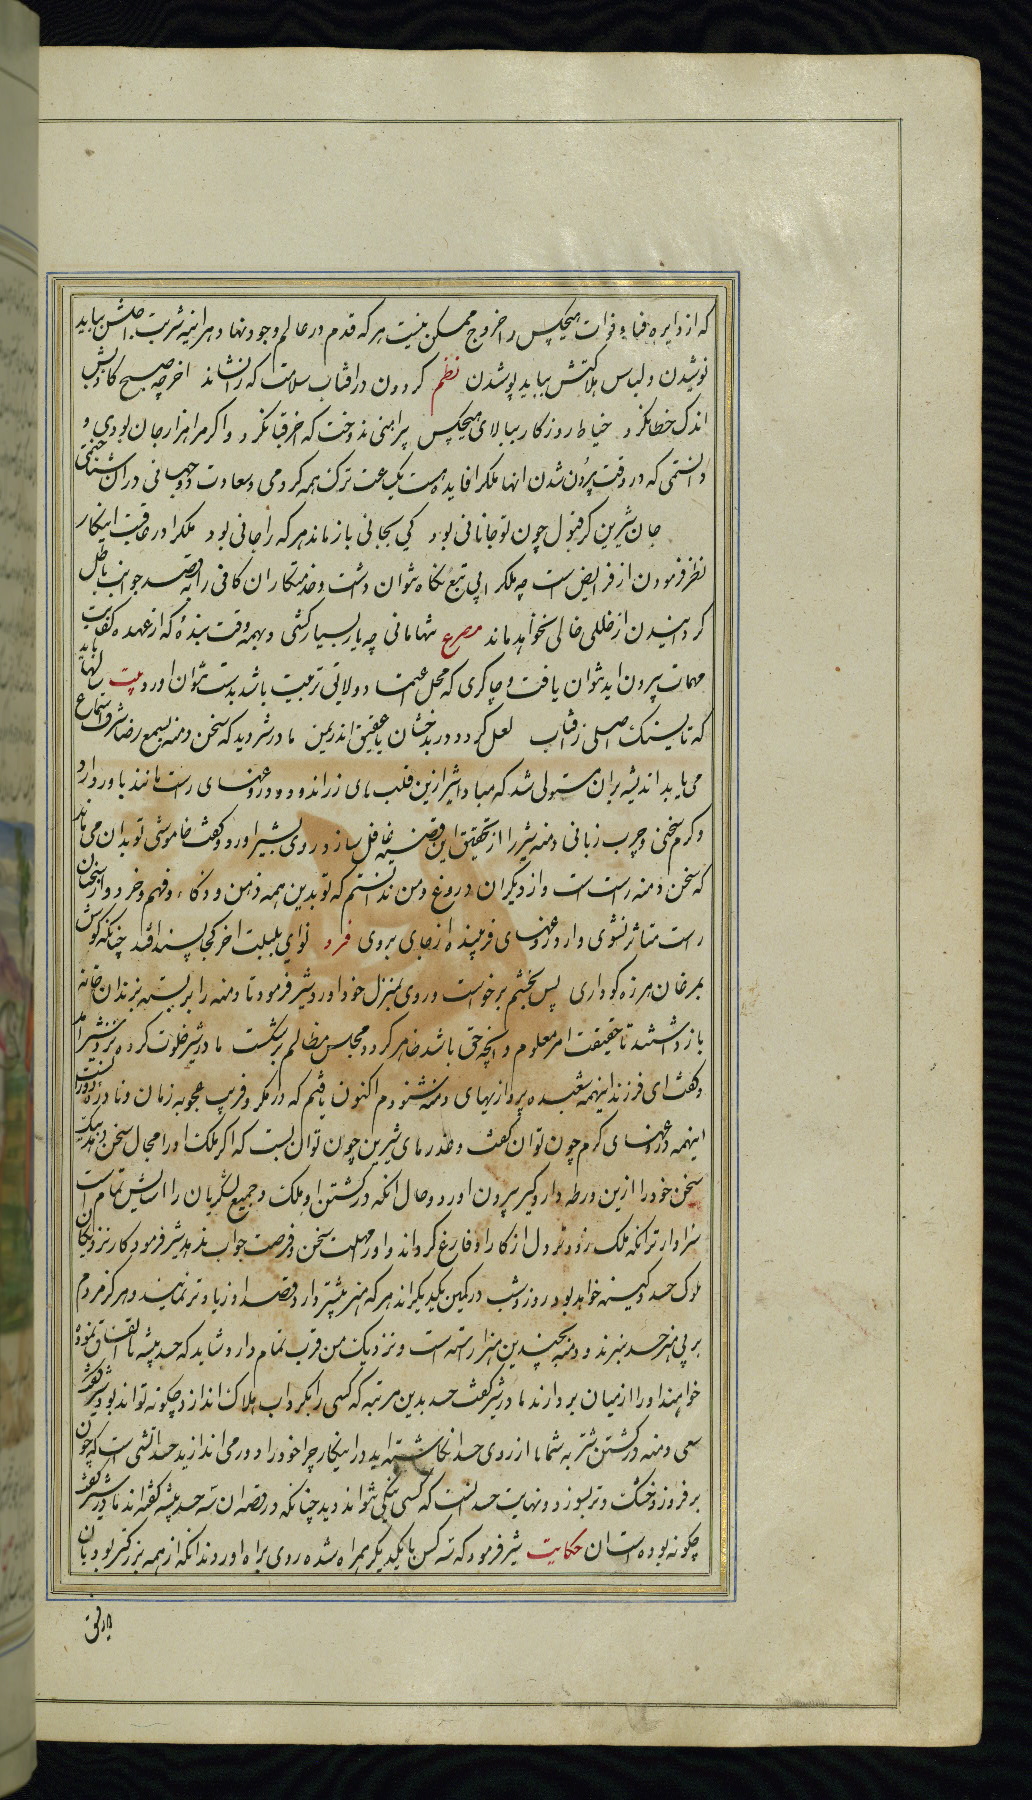 که از دایره فنا و فوات هیچکس را خروج ممکن نیست هر که قدم در عالم وجود نهاد هر اینه شربت اجلش بباید
نوشیدن و لباس هلاکتش بباید پوشیدن نظم کردون در افتاب سلامت که را نشاند اخر چو صبح کاذبش
اندک خطا نکرد خیاط روزکار ببالای هیچکس پیراهنی ندوخت که اخر قبا نکرد و اکر مرا هزار جان بودی و
دانستمی که در وقت بیرون شدن انها ملک را فایده هست یک ساعت ترک همه کردمی و سعادت دو جهانی در ان شناختمی
جان شیرین کر قبول چون تو جانانی بود کی بجانی باز ماند هر که را جانی بود ملک را در عاقبت اینکار
نظر فرمودن از فرایض است چه ملک را بی تبع نکاه نتوان داشت و خدمتکاران کافی را به قصد جوانب باطل
کردانیدن از خللی خالی نخواهد ماند مصرع تنها مانی چو یار بسیار کشی و بهمه وقت بنده که از عهده کفایت
مهمات بیرون اید نتوان یافت و چاکری که محل اعتماد و لایق تربیت باشد بدست نتوان اورد بیت سالها باید
که تا یک سنک اصلی ز افتاب لعل کردد در بدخشان یا عقیق اندر یمن مادر شیر دید که سخن دمنه بسمع رضا شرف استماع
می یابد اندیشه بر ان مستولی شد که مبادا شیر این قلب های زر اندود و دروغهای راست مانند باور دارد
و کرم سخنی و چرب زبانی دمنه شیر را از تحقیق این قضیه غافل سازد روی بشیر اورد و کفت خاموشی تو بدان می ماند
که سخن دمنه راست است و از دیکران دروغ و من ندانستم که تو بدین همه ذهن و ذکاء و فهم و خرد و از سخنان
راست متاثر نشوی و از دروغهای فریبنده از جای بروی فرد نوای بلبلت اخر کجا پسند افتد چنانکه کوش
بمرغان هرزه کو داری پس بخشم برخواست و روی بمنزل خود اورد شیر فرمود تا دمنه را بر بسته بزندان خانه
باز داشتند تا حقیقت امر معلوم و انچه حق باشد ظاهر کردد و مجلس مظالم بر شکست مادر شیر خلوت کرده نزد شیر امد
و کفت ای فرزند اینهمه شعبده پردازیهای دمنه می شنودم اکنون یافتم که در مکر و فریب اعجوبه زمان و نادره دورانست
اینهمه دروغهای کرم چون توان کفت و عذرهای شیرین چون توان بست که اکر ملک او را مجال سخن دهد بیک
سخن خود را ازین ورطه دار و کیر بیرون اورد و حال انکه در کشتن او ملک و جمیع لشکریان را اسایش تمام است
سزاوارتر انکه ملک زودتر دل از کار او فارغ کرداند و او را مهلت سخن و فرصت جواب ندهد شیر فرمود کار نزدیکان
ملوک حسد و کینه خواهد بود روز و شب در کمین یکدیکراند هر که هنر بیشتر دارد قصد او زیادتر نمایند و هرکز مردم
بر بی هنر حسد نبرند و دمنه بچندین هنر اراسته است و نزدیک من قرب تمام دارد شاید که حسد پیشه ها اتفاق نموده
خواهند او را از میان بردارند مادر شیر کفت حسد بدین مرتبه که کسی را بکرداب هلاک اندازد چکونه تواند بود شیر کفت
سعی دمنه در کشتن شتربه شما ها از روی حسد انکاشته اید در اینکار چرا خود را دور می اندازید حسد اتشی است که چون
بر فروزد خشک و تر بسوزد و نهایت حسد انست که کسی نیکی نتواند دید چنانکه در قصه ان سه حسد پیشه کفته اند مادر شیر کفت
چکونه بوده است ان حکایت شیر فرمود که سه کس با یکدیکر همراه شده روی براه اوردند انکه از همه بزرکتر بود بان